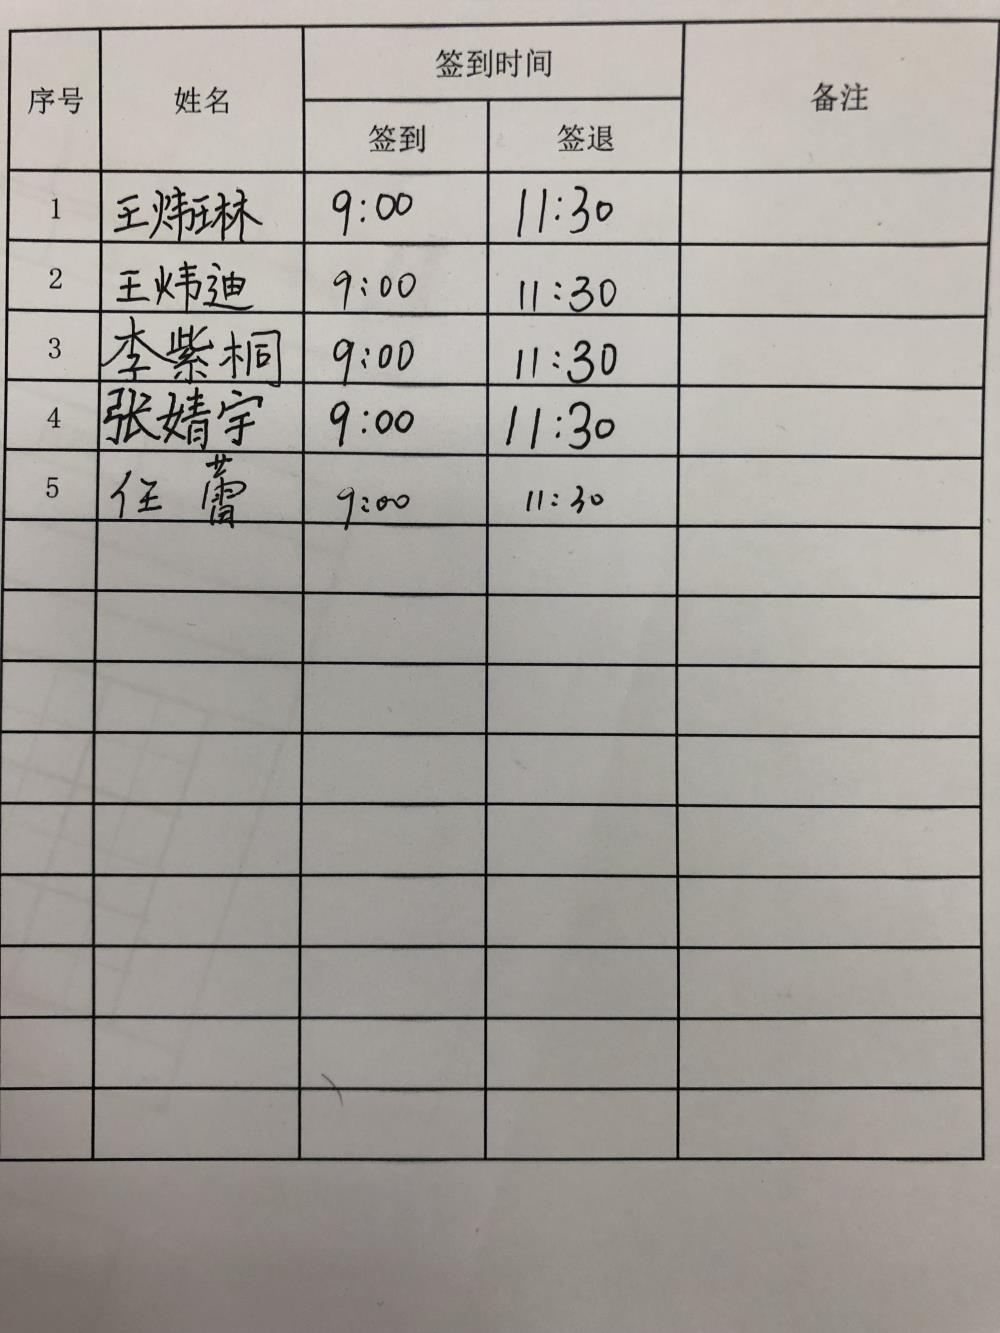 序号 姓名 签到时间 备注
签到 签退
1 王炜琳 9:00 11:30
2 王炜迪 9:00 11:30
3 李紫桐 9:00 11:30
4 张婧宇 9:00 11:30
5 任蕾 9:00 11:30